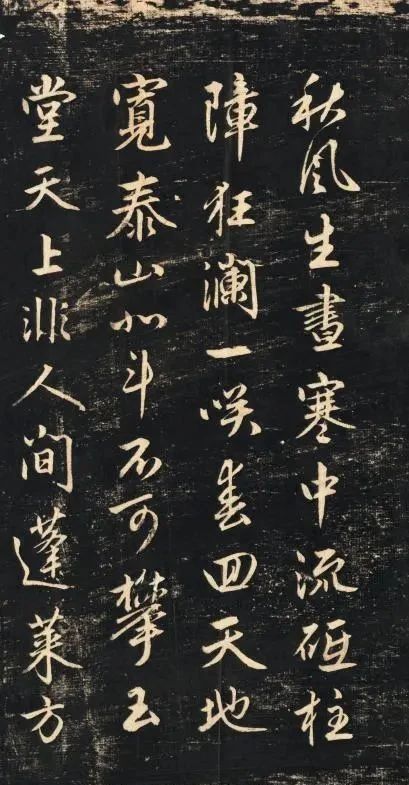 秋風生晝寒中流砥柱
障狂瀾一咲春囬天地
寬泰山北斗不可攀玉
堂天上非人間蓬萊方